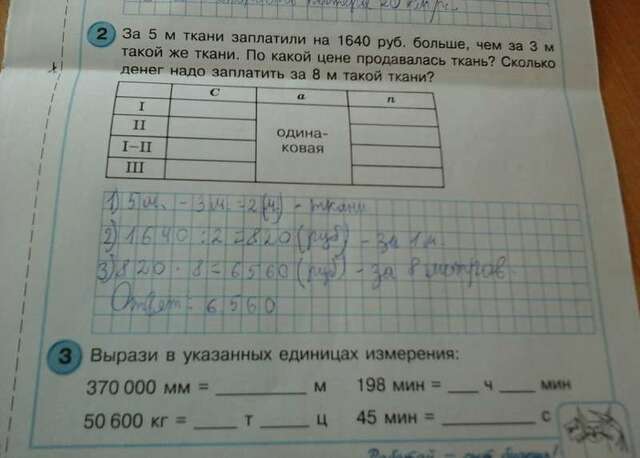 2 За 5 м ткани заплатили на 1640 руб. больше, чем за 3 м
такой же ткани. По какой цене продавалась ткань? Сколько
денег надо заплатить за 8 м такой ткани?
C a n
I
II
одина-
ковая
I–II
III
1) 5 м. - 3 м. = 2 (м) - ткани
2) 1640 : 2 = 820 (руб) - за 1 м.
3) 820 · 8 = 6560 (руб) - за 8 метров.
Ответ: 6560
3 Вырази в указанных единицах измерения:
370 000 мм = ________ м 198 мин = ___ ч ___ мин
50 600 кг = ____ т ____ ц 45 мин = ________ с